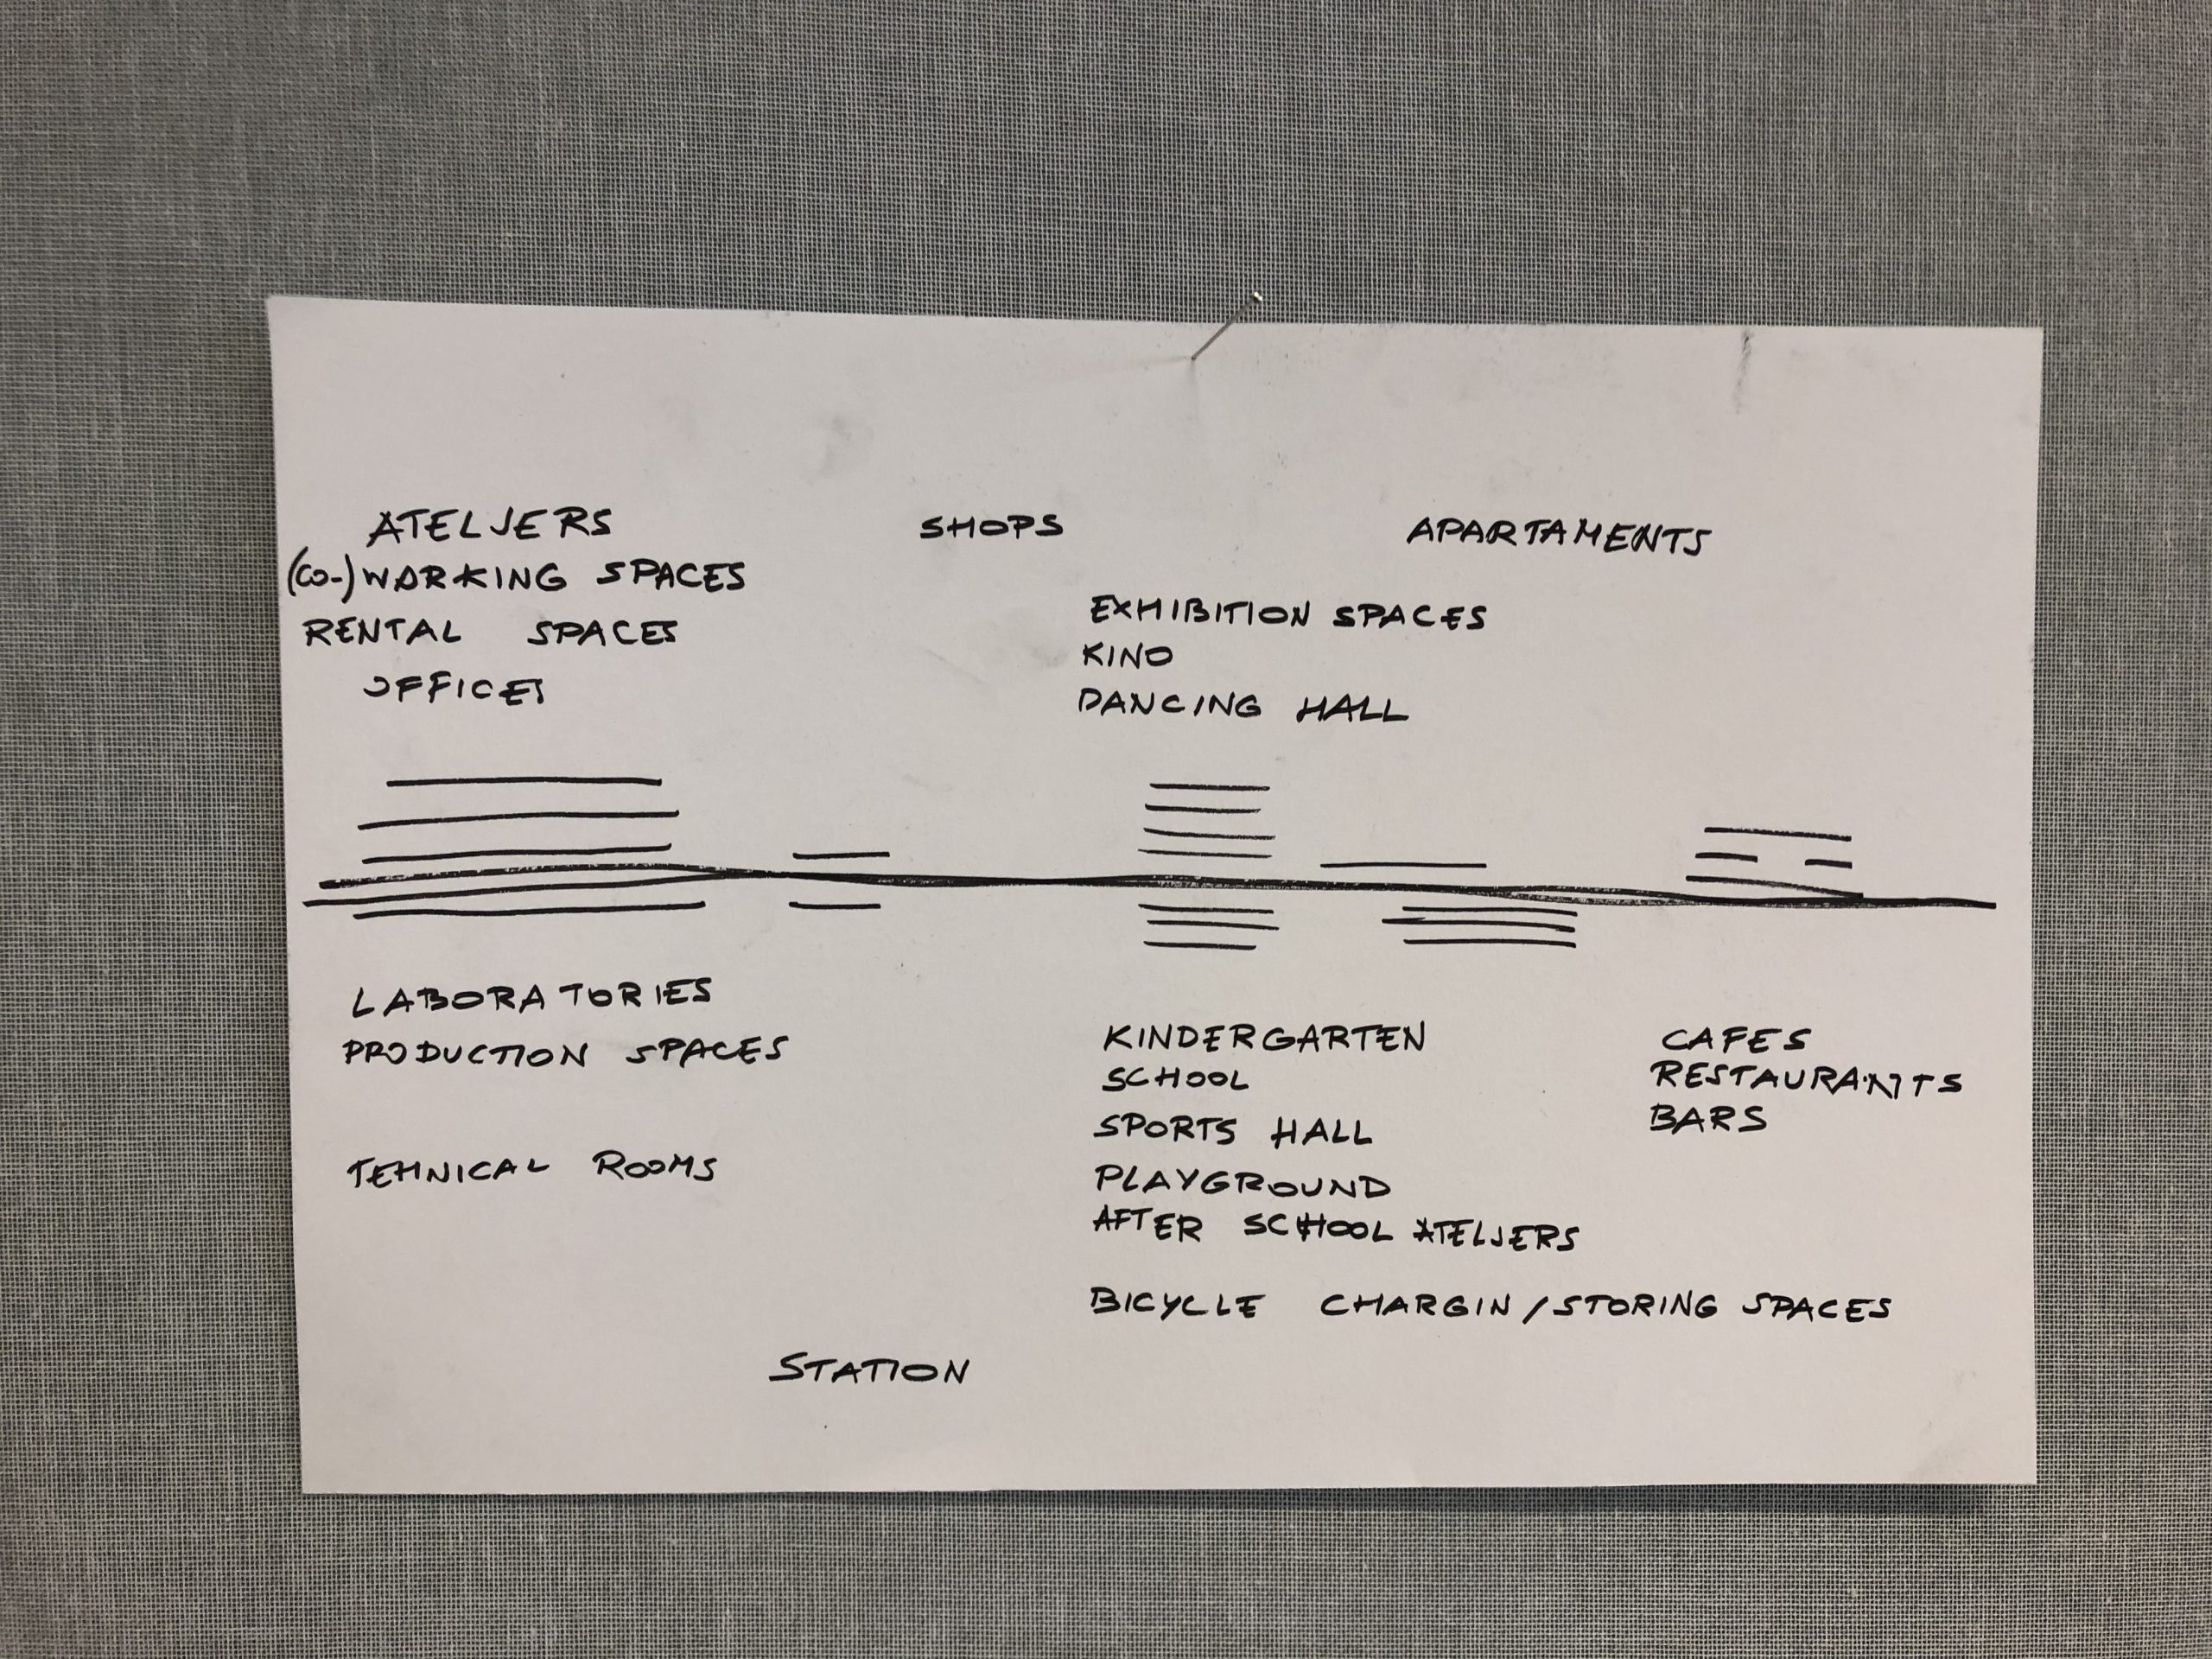 ATELJERS
(CO-)WORKING SPACES
RENTAL SPACES
OFFICES
SHOPS
EXHIBITION SPACES
KINO
DANCING HALL
APARTAMENTS
LABORATORIES
PRODUCTION SPACES
TEHNICAL ROOMS
KINDERGARTEN
SCHOOL
SPORTS HALL
PLAYGROUND
AFTER SCHOOL ATELJERS
BICYCLE CHARGIN/STORING SPACES
CAFES
RESTAURANTS
BARS
STATION